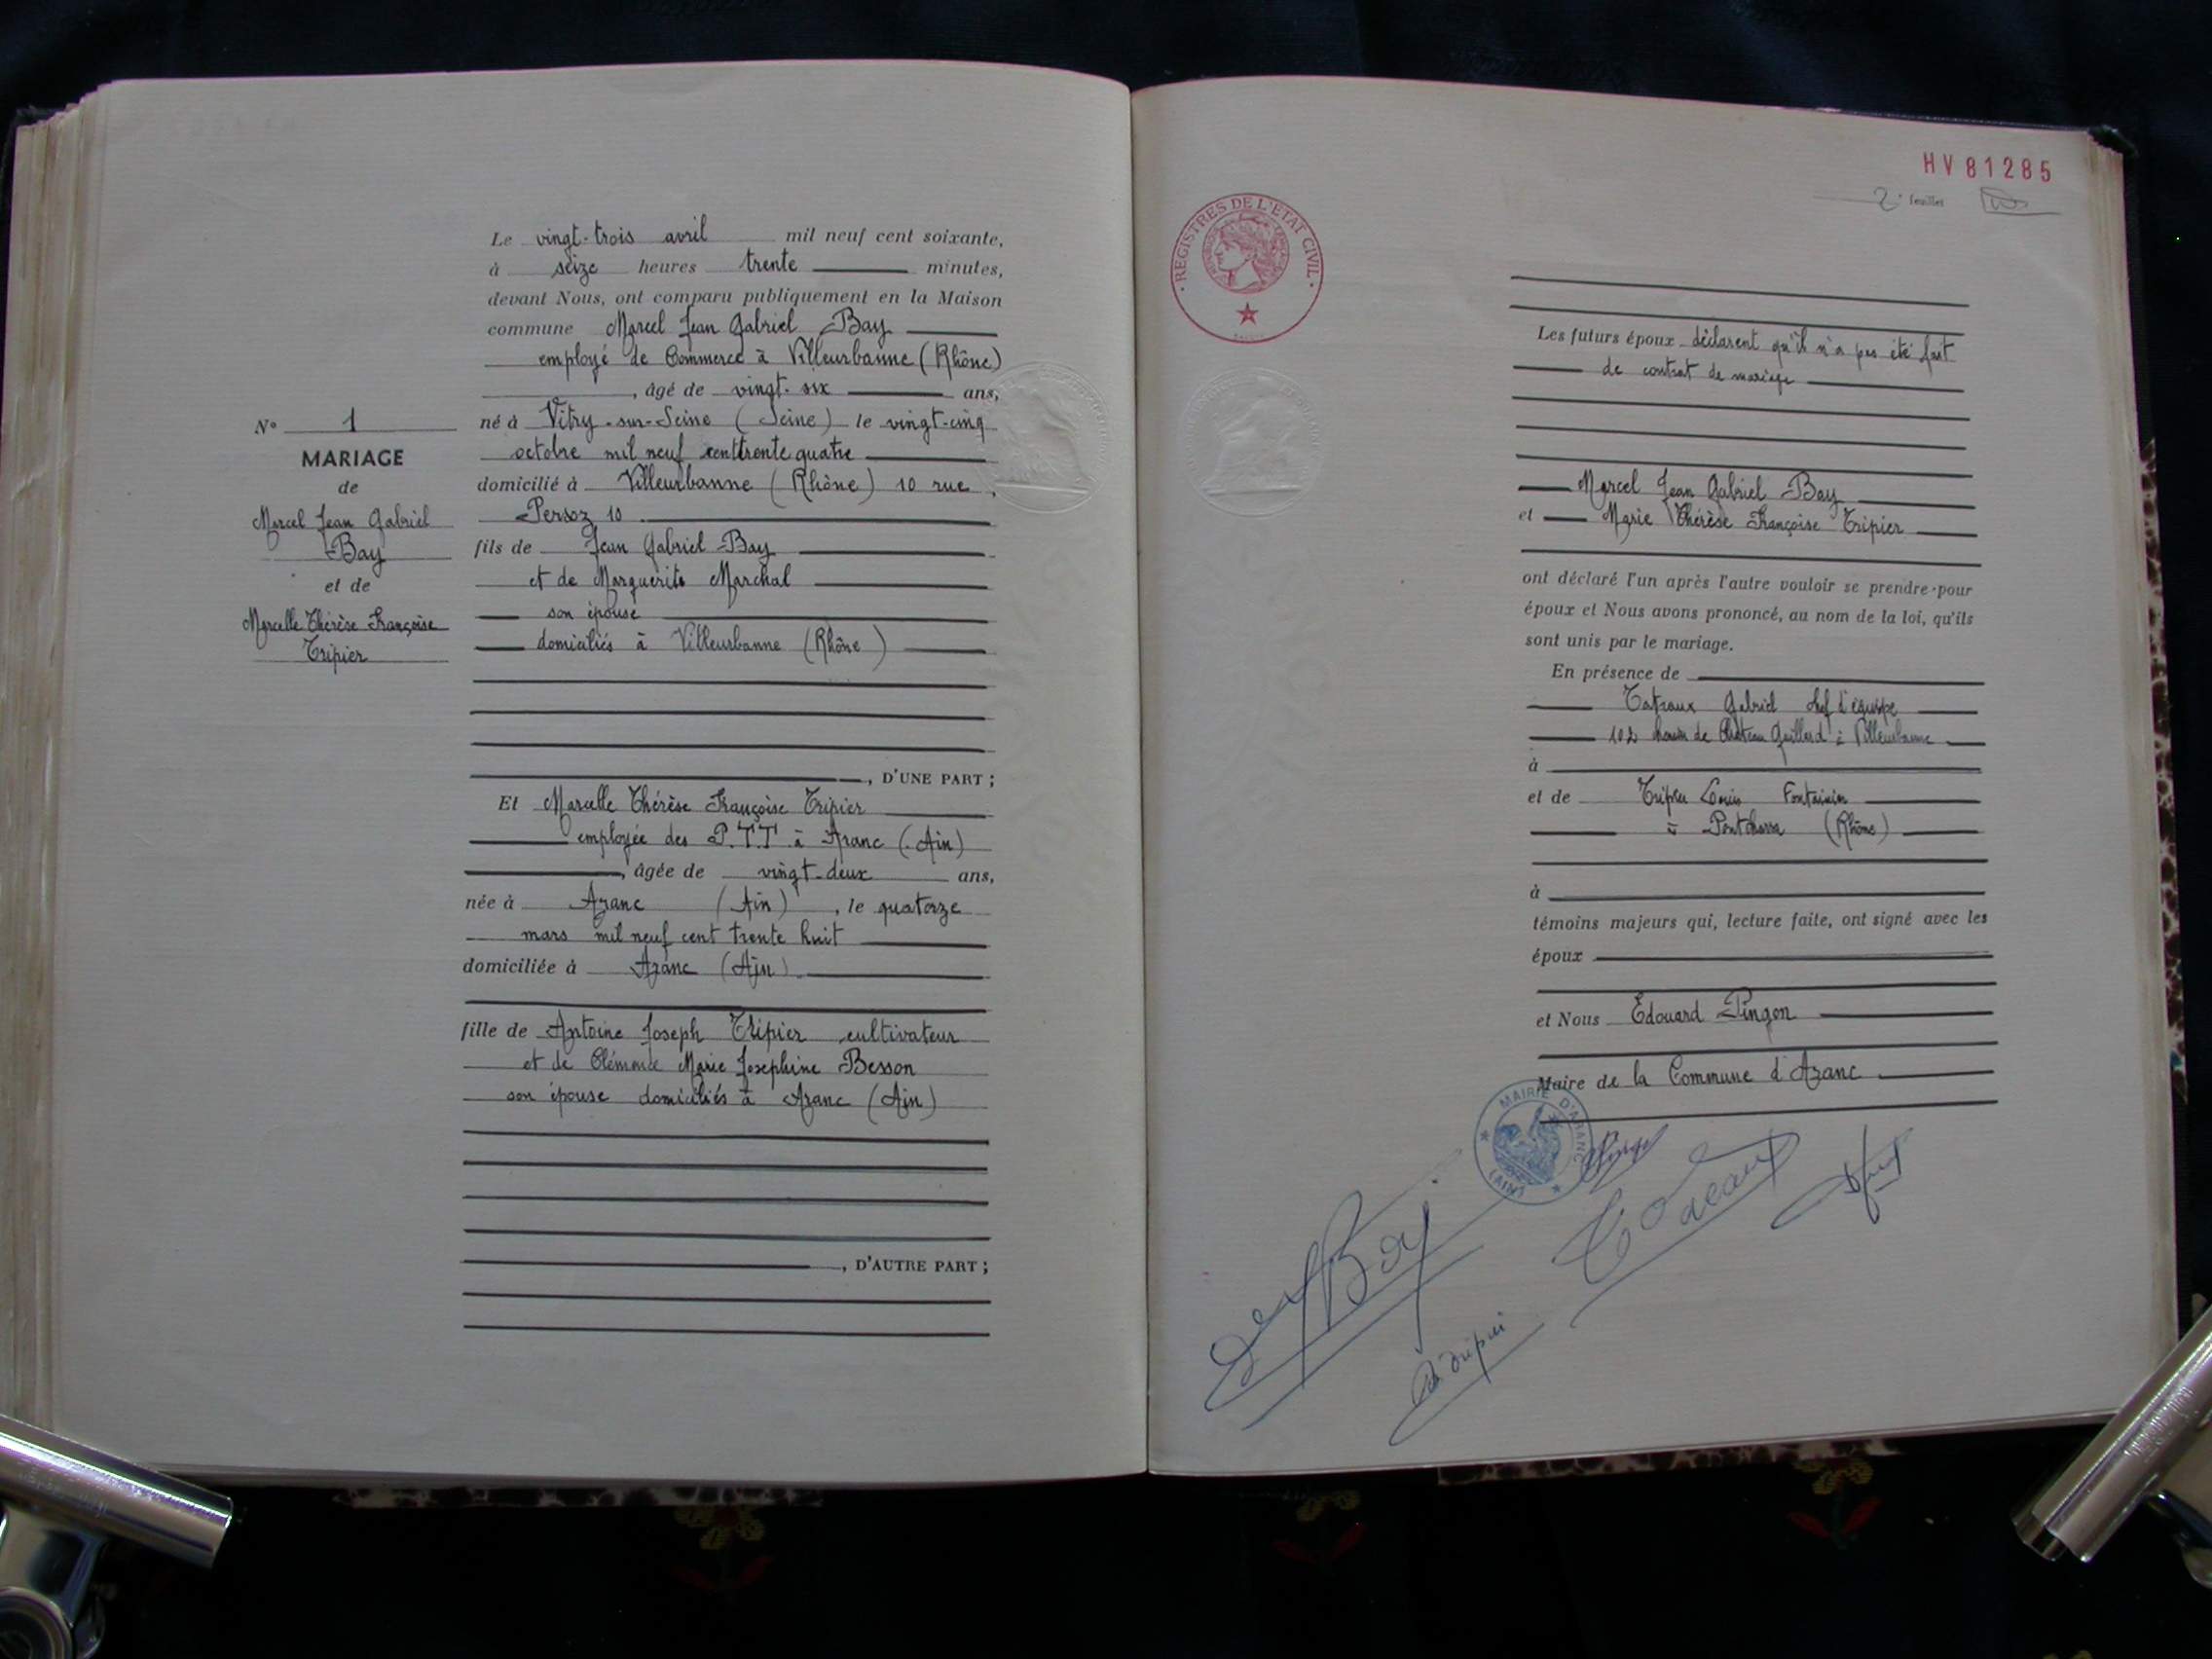 N° 1
MARIAGE
de
Marcel Jean Gabriel
Bay
et de
Marcelle Thérèse Françoise
Tripier
Le vingt-trois avril mil neuf cent soixante,
à seize heures trente minutes,
devant Nous, ont comparu publiquement en la Maison
commune Marcel Jean Gabriel Bay
employé de Commerce à Villeurbanne (Rhône)
, âgé de vingt-six ans,
né à Vitry-sur-Seine (Seine) le vingt-cinq
octobre mil neuf cent trente quatre
domicilié à Villeurbanne (Rhône) 10 rue
Persoz 10
fils de Jean Gabriel Bay
et de Marguerite Marchal
son épouse
domiciliés à Villeurbanne (Rhône)
, D'UNE PART ;
Et Marcelle Thérèse Françoise Tripier
employée des P.T.T. à Aranc (Ain)
, âgée de vingt-deux ans,
née à Aranc (Ain), le quatorze
mars mil neuf cent trente huit
domiciliée à Aranc (Ain)
fille de Antoine Joseph Tripier cultivateur
et de Clémence Marie Josephine Besson
son épouse domiciliés à Aranc (Ain)
, D'AUTRE PART ;
HV 81285
2e feuillet
REGISTRES DE L'ETAT CIVIL
Les futurs époux déclarent qu'il n'a pas été fait
de contrat de mariage
Marcel Jean Gabriel Bay
et Marie Thérèse Françoise Tripier
ont déclaré l'un après l'autre vouloir se prendre pour
époux et Nous avons prononcé, au nom de la loi, qu'ils
sont unis par le mariage.
En présence de
Gabriel chef d'équipe
102 de Château Gaillard à Villeurbanne
à
et de Tripier Louis
à Pontcharra (Rhône)
à
témoins majeurs qui, lecture faite, ont signé avec les
époux
et Nous Edouard Pingon
Maire de la Commune d'Aranc
MAIRIE D'ARANC
(AIN)
Bay